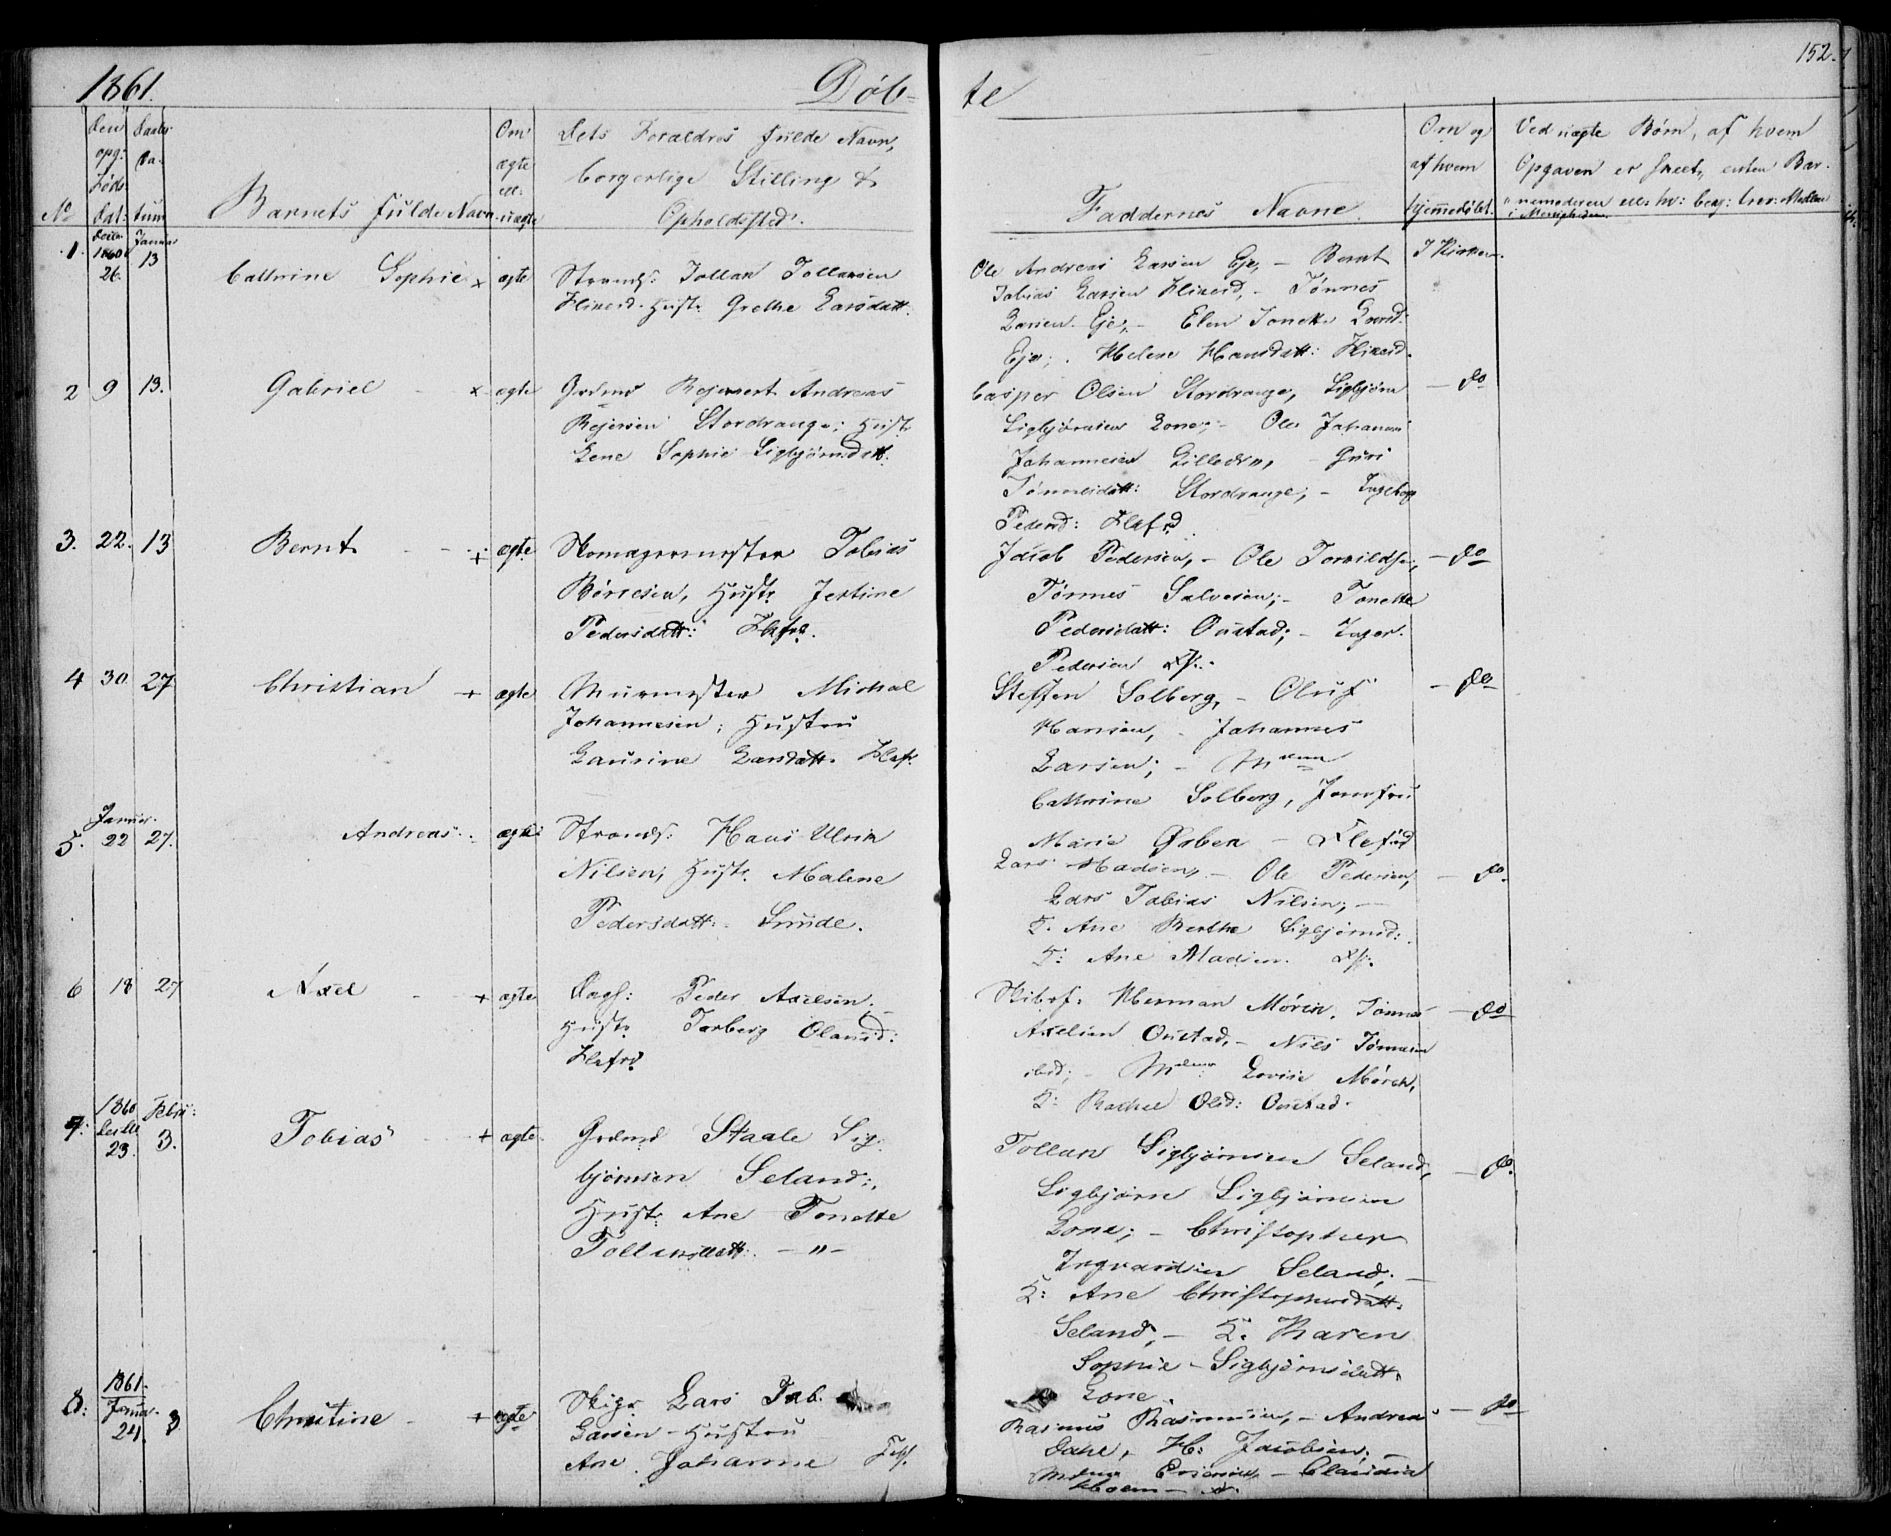 1861.
Døb-
te
152.
Den opg: Føds: Dat:
Daabs Da- tum
No
Barnets fulde Navn.
Om ægte ell: uægte
Dets Forældres fulde Navn,
borgerlige Stilling &
Opholdsted.
Faddernes Navne.
Om og
af hvem
hjemmedøbt.
Ved uægte Børn, af hvem
Opgaven er skeet, enten Bar-
1. Decbr 1860 26. Januar 13
Cathrine Sophie x ægte
Strands: Tollak Tollaksen
Hust: Grethe Larsdatt.
Ole Andreas Larsen Eje, - Bernt
Tobias Larsen - Tønnes
Larsen Eje, - Elen Tonette
Eje; Helene Hansdatt:
I Kirken.
2 9 13. Gabriel x ægte
Grdmd Rejnert Andreas
Rejersen Stordrange; Hust:
Lene Sophie Sigbjørnsdatt.
Casper Olsen Stordrange, Sigbjørn
Sigbjørnsen Lone; - Ole Johannes
Johannesen - Guri
Tønnesdatt: Stordrange; - Ingeborg
Pedersd: Flekfd.
- do
3. 22. 13 Bernt + ægte
Skomagermester Tobias
Børresen, Hustr: Jertine
Pedersdatt: Flekfd.
Jacob Pedersen, - Ole Torkildsen,
Tønnes Salvesen; - Tonette
Pedersdatt: Oustad; - Inger
Pedersen
- do
4 30 27 Christian + ægte
Murmester Michal
Johannesen; Hustru
Laurine Larsdatt. Flekf.
Steffen Solberg, - Oluf
Hansen, - Johannes
Larsen; - Mdm
Cathrine Solberg, Jomfru
Marie - Flekfrd
- do
5. Januar. 22 27. Andreas ægte
Strands: Hans Ulrik
Nilsen; Hustr. Malene
Pedersdatt: - Sunde.
Lars Madsen, - Ole Pedersen,
Lars Tobias Nilsen; -
K. Ane Berthe Sigbjørnsd:
K: Ane Madsen.
- do.
6 18 27 Axel + ægte
Dags: Peder Axelsen; -
Hustr. Torberg Olausd:
Flekfrd
Skibsf: Herman Mørch, Tønnes
Axelsen Oustad, - Nils Tønnesen
ibid; - Lovise Mørch,
K: Rachel Olsd: Oustad.
- do
7. 1860 Decbr 23. Febr: 3. Tobias + ægte.
Grdmd Staale Sig-
bjørnsen Seland:,
Hust: Ane Tonette
Tollaksdatt: - " -
Tollak Sigbjørnsen Seland,
Sigbjørn Sigbjørnsen
Lone; - Christopher
Ingvardsen Seland; -
K: Ane Christophersdatt:
Seland, - K. Karen
Sophie Sigbjørnsdatt:
Lone.
- do.
8. 1861. Januar. 24. 3 Christine + ægte
Skipr Lars Tob.
Larsen - Hustru
Ane Johanne
Rasmus Rasmussen, - Andreas
Dahl, H: Jacobsen; -
- Claudia
- do